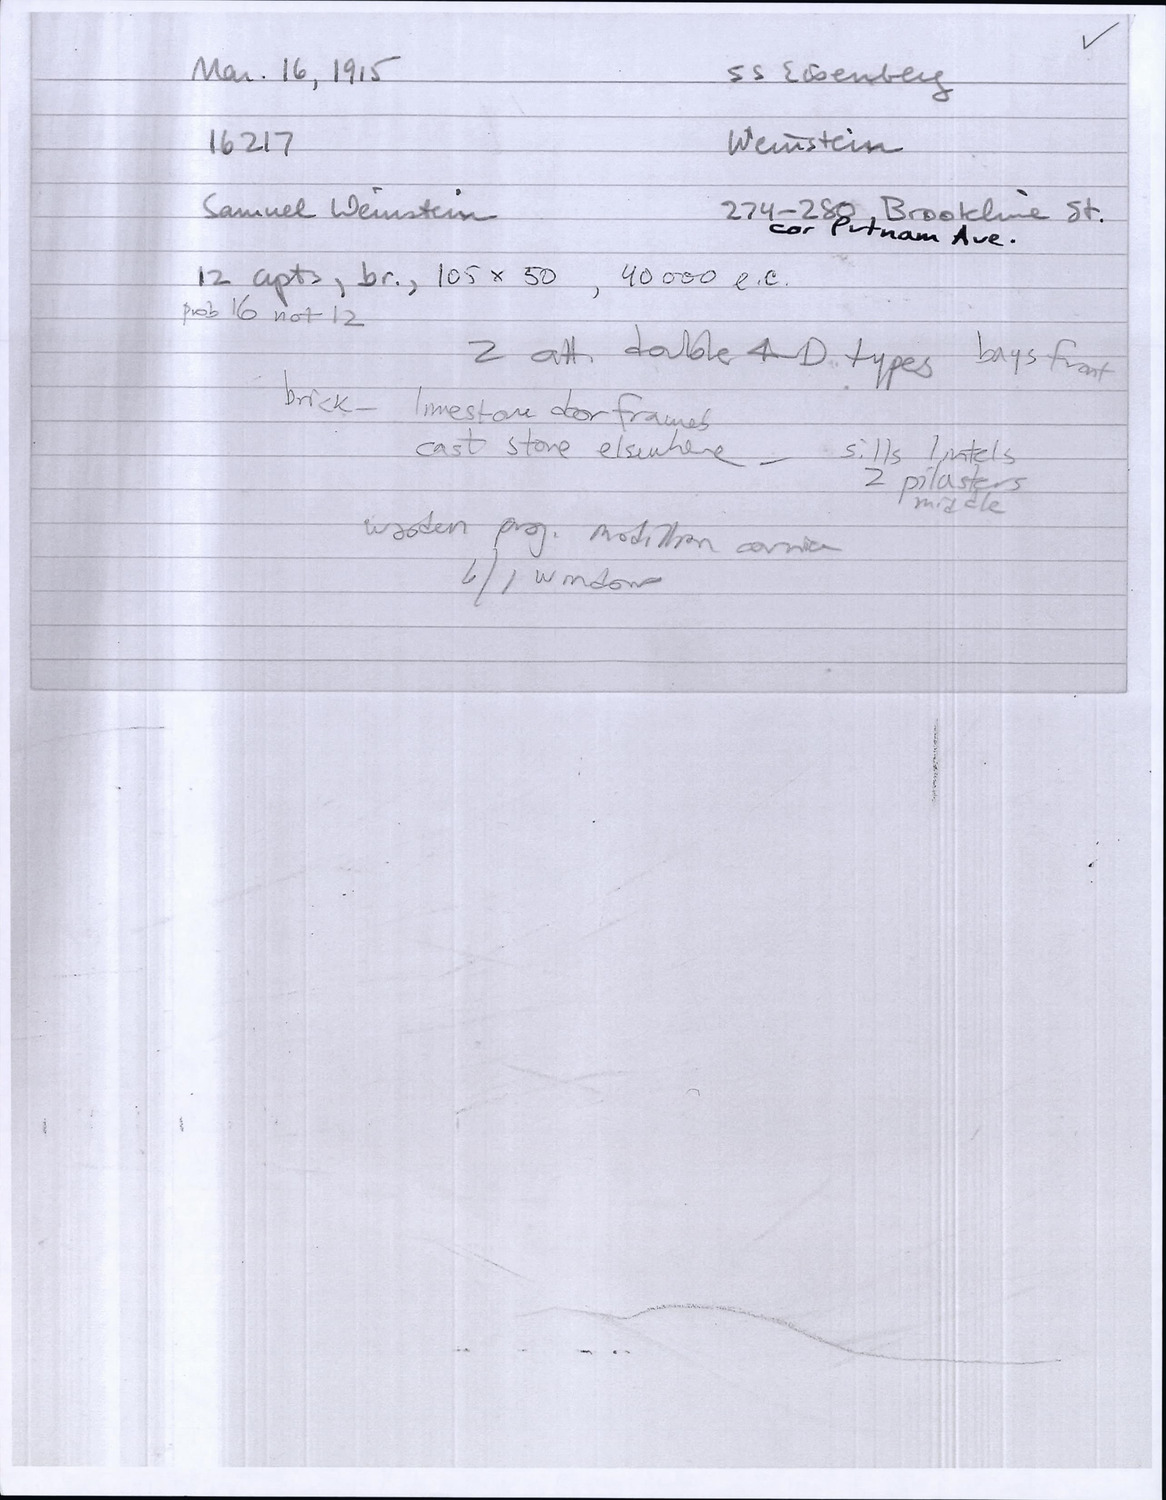 Mar. 16, 1915 SS Eisenberg
16217 Weinstein
Samuel Weinstein 274-280 Brookline St.
cor Putnam Ave.
12 apts, br., 105 x 50 , 40000 e.c.
prob 16 not 12
2 att. double 4-D types bays front
brick - limestone door frames
cast stone elsewhere - sills lintels
2 pilasters
middle
wooden proj. modillion cornice
6/1 windows